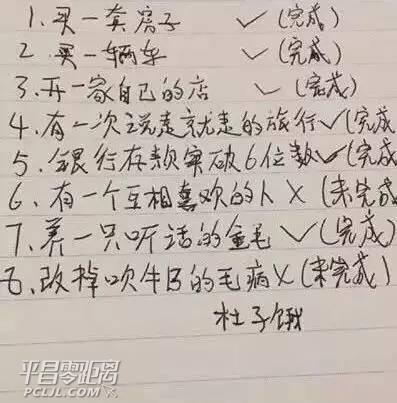 1.买一套房子 ✓(完成)
2.买一辆车 ✓(完成)
3.开一家自己的店 ✓(完成)
4.有一次说走就走的旅行✓(完成
5.银行存款突破6位数✓(完成
6.有一个互相喜欢的人 X (未完成
7.养一只听话的金毛 ✓(完成)
8.改掉吹牛B的毛病X(未完成)
肚子饿
平昌零距离
PCLJL.COM